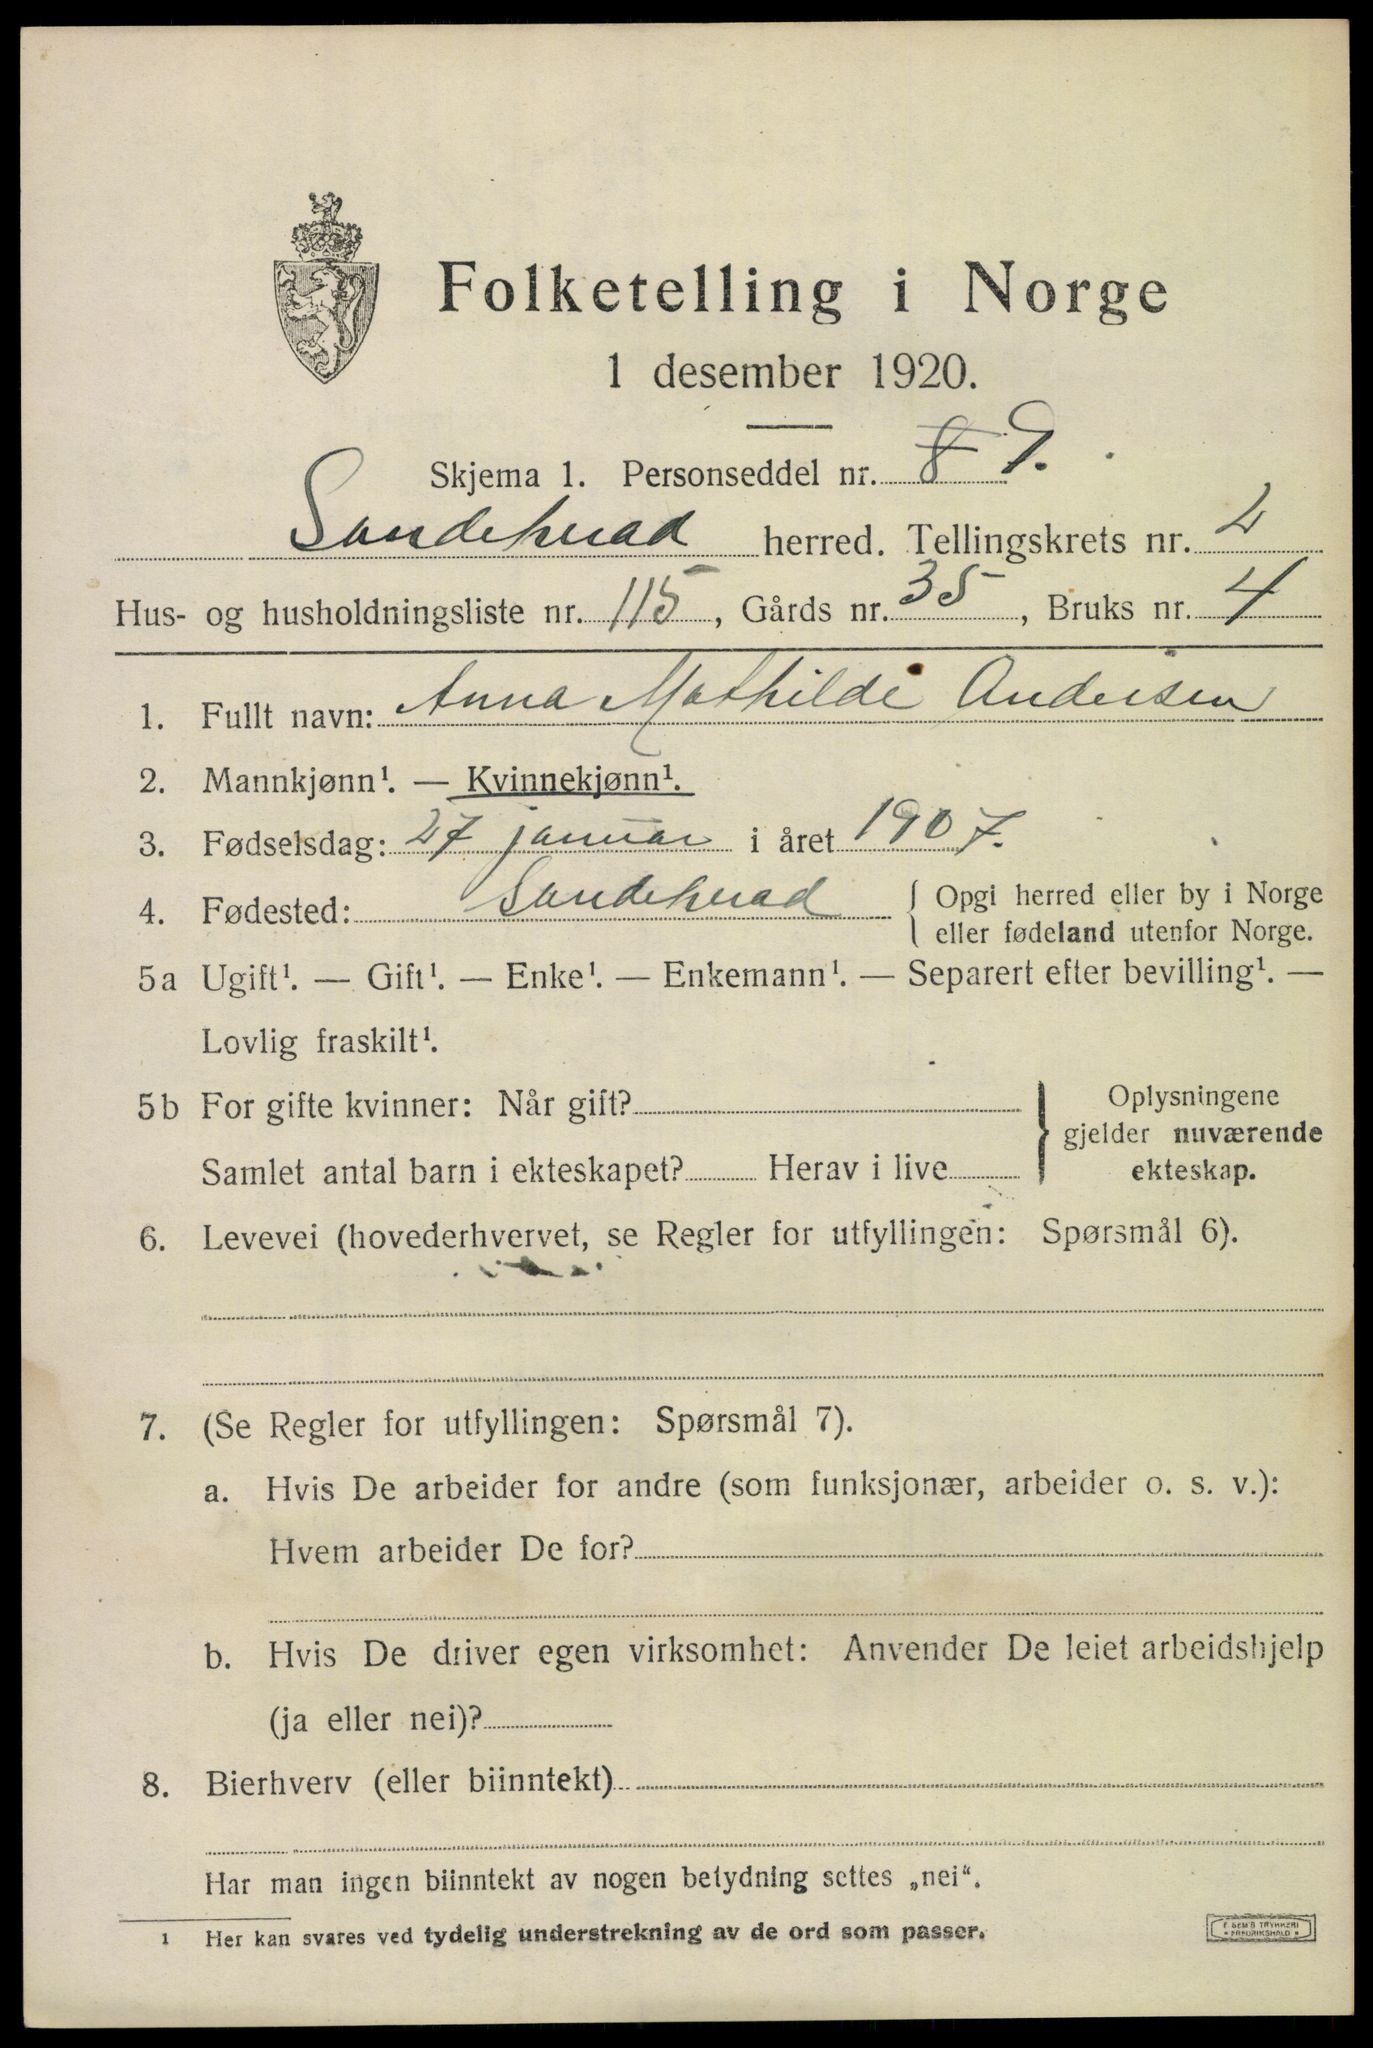 Folketelling i Norge
1 desember 1920.
Skjema 1. Personseddel nr. 8 9.
Sandeherad herred. Tellingskrets nr. 2
Hus- og husholdningsliste nr. 115, Gårds nr. 35, Bruks nr. 4
1. Fullt navn: Anna Mathilde Andersen
2. Mannkjønn¹. — Kvinnekjønn¹.
3. Fødselsdag: 27 januar i året 1907.
4. Fødested: Sandeherad { Opgi herred eller by i Norge
eller fødeland utenfor Norge.
5a Ugift¹. — Gift¹. — Enke¹. — Enkemann¹. — Separert efter bevilling¹. —
Lovlig fraskilt¹.
5b For gifte kvinner: Når gift?
Samlet antal barn i ekteskapet? Herav i live
} Oplysningene
gjelder nuværende
ekteskap.
6. Levevei (hovederhvervet, se Regler for utfyllingen: Spørsmål 6).
7. (Se Regler for utfyllingen: Spørsmål 7).
a. Hvis De arbeider for andre (som funksjonær, arbeider o. s. v.):
Hvem arbeider De for?
b. Hvis De driver egen virksomhet: Anvender De leiet arbeidshjelp
(ja eller nei)?
8. Bierhverv (eller biinntekt)
Har man ingen biinntekt av nogen betydning settes „nei“.
1 Her kan svares ved tydelig understrekning av de ord som passer.
E SEM'S TRYKKERI
* FREDRIKSHALD *